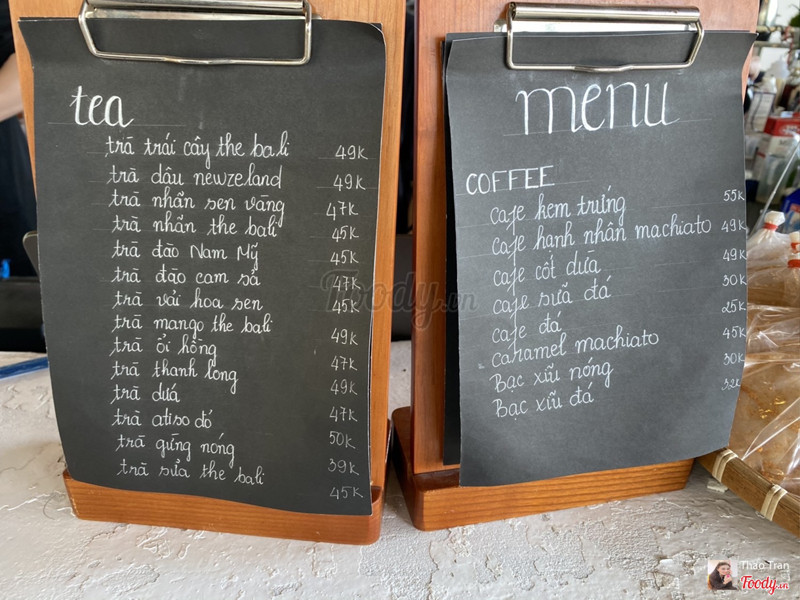 tea
trà trái cây the bali 49K
trà dâu newzeland 49K
trà nhãn sen vàng 47K
trà nhãn the bali 45K
trà đào Nam Mỹ 45K
trà đào cam sả 47K
trà vải hoa sen 45K
trà mango the bali 49K
trà ổi hồng 47K
trà thanh long 49K
trà dứa 47K
trà atiso đỏ 50K
trà gừng nóng 39K
trà sữa the bali 45K
menu
COFFEE
cafe kem trứng 55K
cafe hạnh nhân machiato 49K
cafe cốt dừa 49K
cafe sữa đá 30K
cafe đá 25K
caramel machiato 45K
Bạc xỉu nóng 30K
Bạc xỉu đá
Foody.vn
Thao Tran
Foody.vn